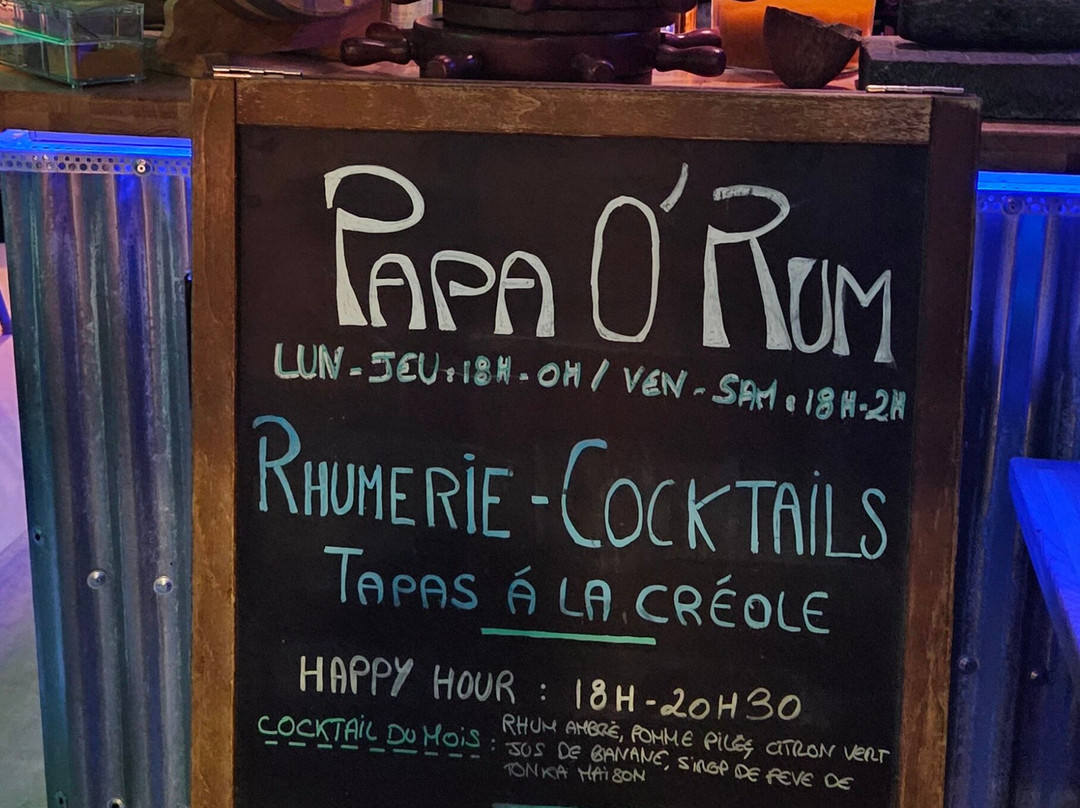 PAPA O'RUM
LUN-JEU:18H-0H / VEN-SAM:18H-2H
RHUMERIE-COCKTAILS
TAPAS Á LA CRÉOLE
HAPPY HOUR : 18H-20H30
COCKTAIL DU MOIS : RHUM AMBRÉ, POMME PILÉE, CITRON VERT
JUS DE BANANE, SIROP DE FEVE DE
TONKA MAISON